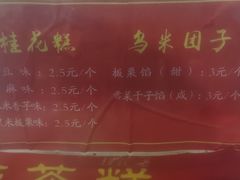 桂花糕
豆味：2.5元/个
麻味：2.5元/个
米香芋味：2.5元/个
米板栗味：2.5元/个
乌米团子
板栗馅（甜）：3元/个
雪菜干子馅（咸）：3元/个